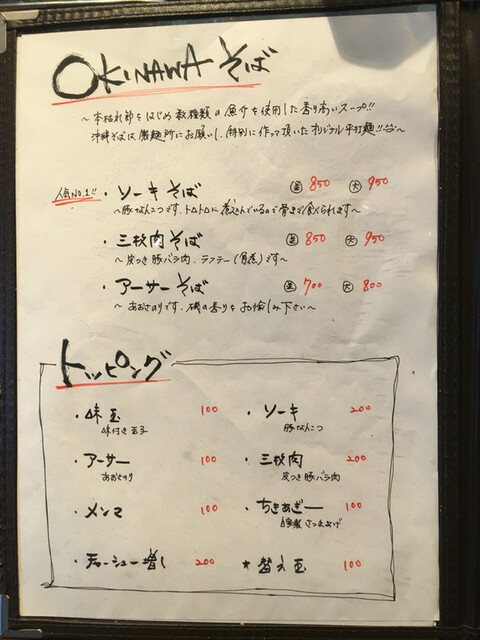 OKINAWA そば
〜本枯れ節をはじめ数種類の魚介を使用した香り高いスープ!!
沖縄そばは製麺所にお願いし、特別に作って頂いたオリジナル平打麺!!〜
人気NO.1!! ・ソーキそば 並 850 大 950
〜豚なんこつです。トロトロに煮込んでいるので骨まで食べられます〜
・三枚肉そば 並 850 大 950
〜皮つき豚バラ肉、ラフテー(角煮)です〜
・アーサーそば 並 700 大 800
〜あおさのりです。磯の香りをお愉しみ下さい〜
トッピング
・味玉 100
味付き玉子
・ソーキ 200
豚なんこつ
・アーサー 100
あおさのり
・三枚肉 200
皮つき豚バラ肉
・メンマ 100
・ちきあぎー 100
自家製さつまあげ
・チャーシュー増し 200
*替え玉 100